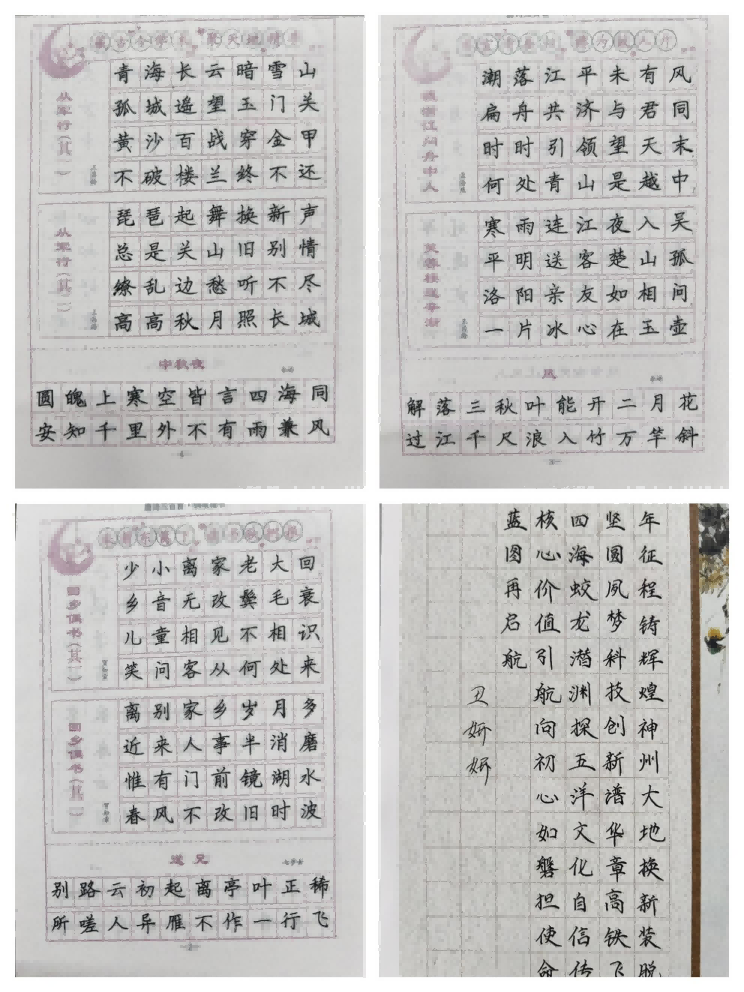 从军行(其一)
王昌龄
青海长云暗雪山
孤城遥望玉门关
黄沙百战穿金甲
不破楼兰终不还
从军行(其二)
王昌龄
琵琶起舞换新声
总是关山旧别情
缭乱边愁听不尽
高高秋月照长城
中秋夜
圆魄上寒空皆言四海同
安知千里外不有雨兼风
潮落江平未有风
扁舟共济与君同
时时引领望天末
何处青山是越中
芙蓉楼送辛渐
寒雨连江夜入吴
平明送客楚山孤
洛阳亲友如相问
一片冰心在玉壶
风
解落三秋叶能开二月花
过江千尺浪入竹万竿斜
回乡偶书(其一)
贺知章
少小离家老大回
乡音无改鬓毛衰
儿童相见不相识
笑问客从何处来
回乡偶书(其二)
贺知章
离别家乡岁月多
近来人事半消磨
惟有门前镜湖水
春风不改旧时波
送兄
七岁女
别路云初起离亭叶正稀
所嗟人异雁不作一行飞
年征程铸辉煌神州大地换新装脱
坚圆夙梦科技创新谱华章高铁飞
四海蛟龙潜渊探五洋文化自信传
核心价值引航向初心如磐担使命
蓝图再启航
卫妍妍